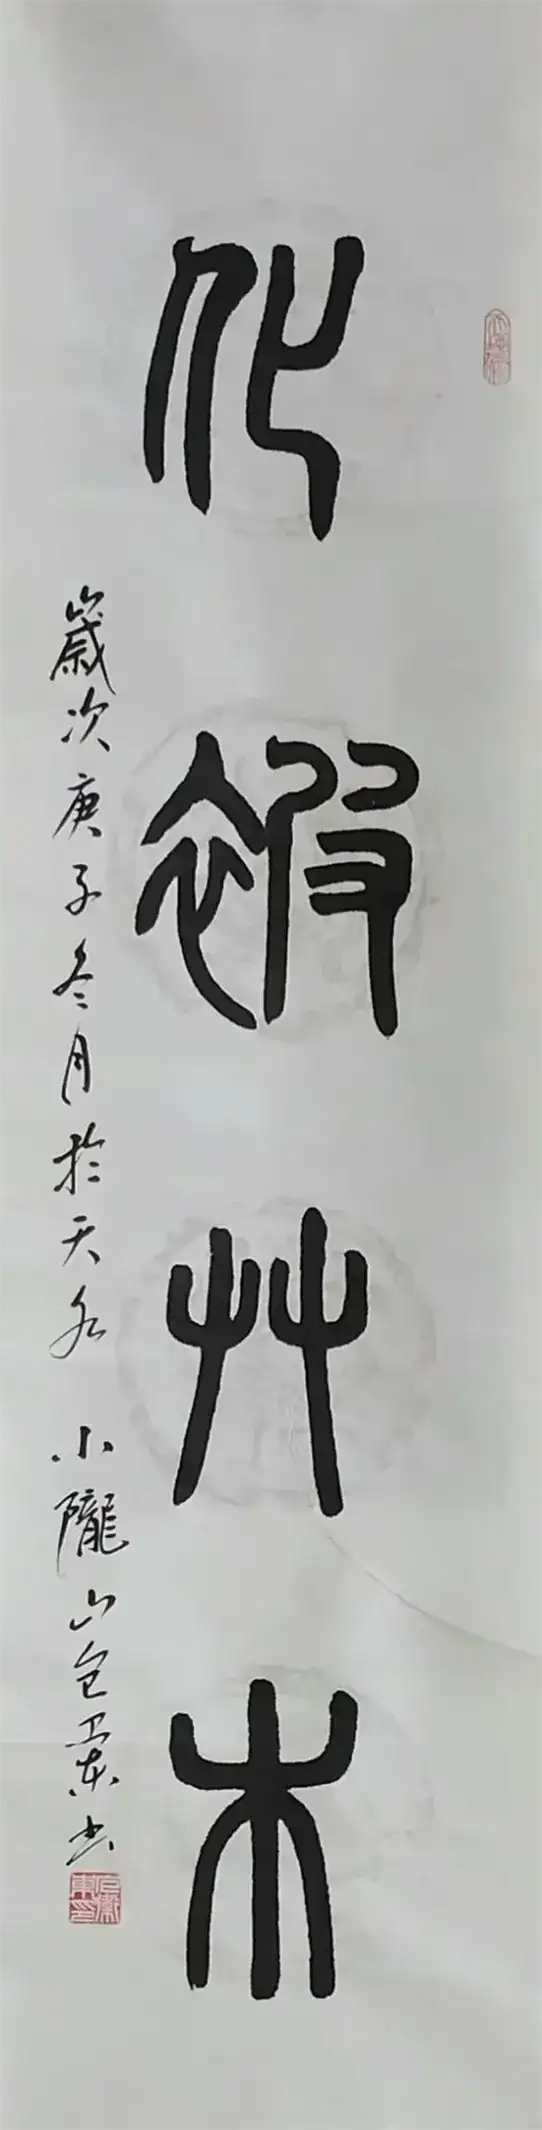 化被草木
歲次庚子冬月於天水 小隴山包衛東书